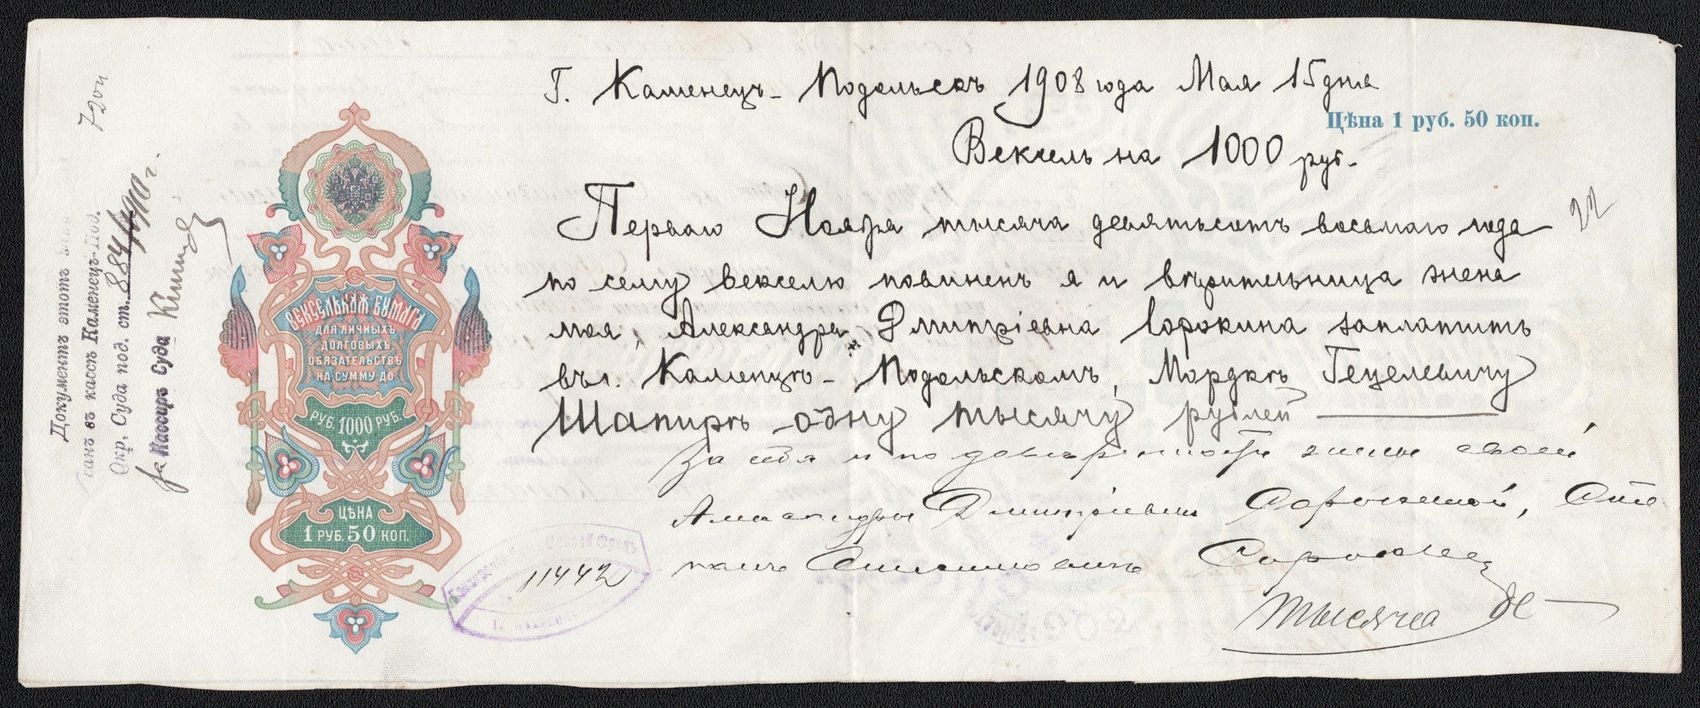 Г. Каменецъ-Подольскъ 1908 года Мая 15 дня
Цѣна 1 руб. 50 коп.
Вексель на 1000 руб.
Перваго Ноября тысяча девятьсотъ восьмаго года
22
по сему векселю повиненъ я и вѣрительница жена
моя, Александра Дмитріевна Сорокина заплатить
въ г. Каменцѣ-Подольскомъ, Мордкѣ Гецелевичу
Шапирѣ одну тысячу рублей
За себя и по довѣренности жены своей
Александры Дмитріевны Сорокиной, Сте
панъ Сорокинъ
Тысяча
7204
Документъ этотъ
въ кассѣ Каменецъ-Под.
Окр. Суда под. ст. 884
Кассиръ Суда
ВЕКСЕЛЬНАЯ БУМАГА
ДЛЯ ЛИЧНЫХЪ
ДОЛГОВЫХЪ
ОБЯЗАТЕЛЬСТВЪ
НА СУММУ ДО
РУБ. 1000 РУБ.
ЦѢНА
1 РУБ. 50 КОП.
11442